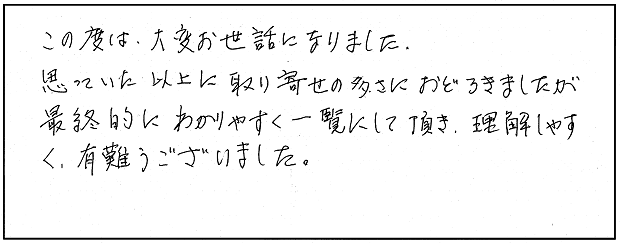 この度は、大変お世話になりました。
思っていた以上に取り寄せの多さにおどろきましたが
最終的にわかりやすく一覧にして頂き、理解しやす
く、有難うございました。